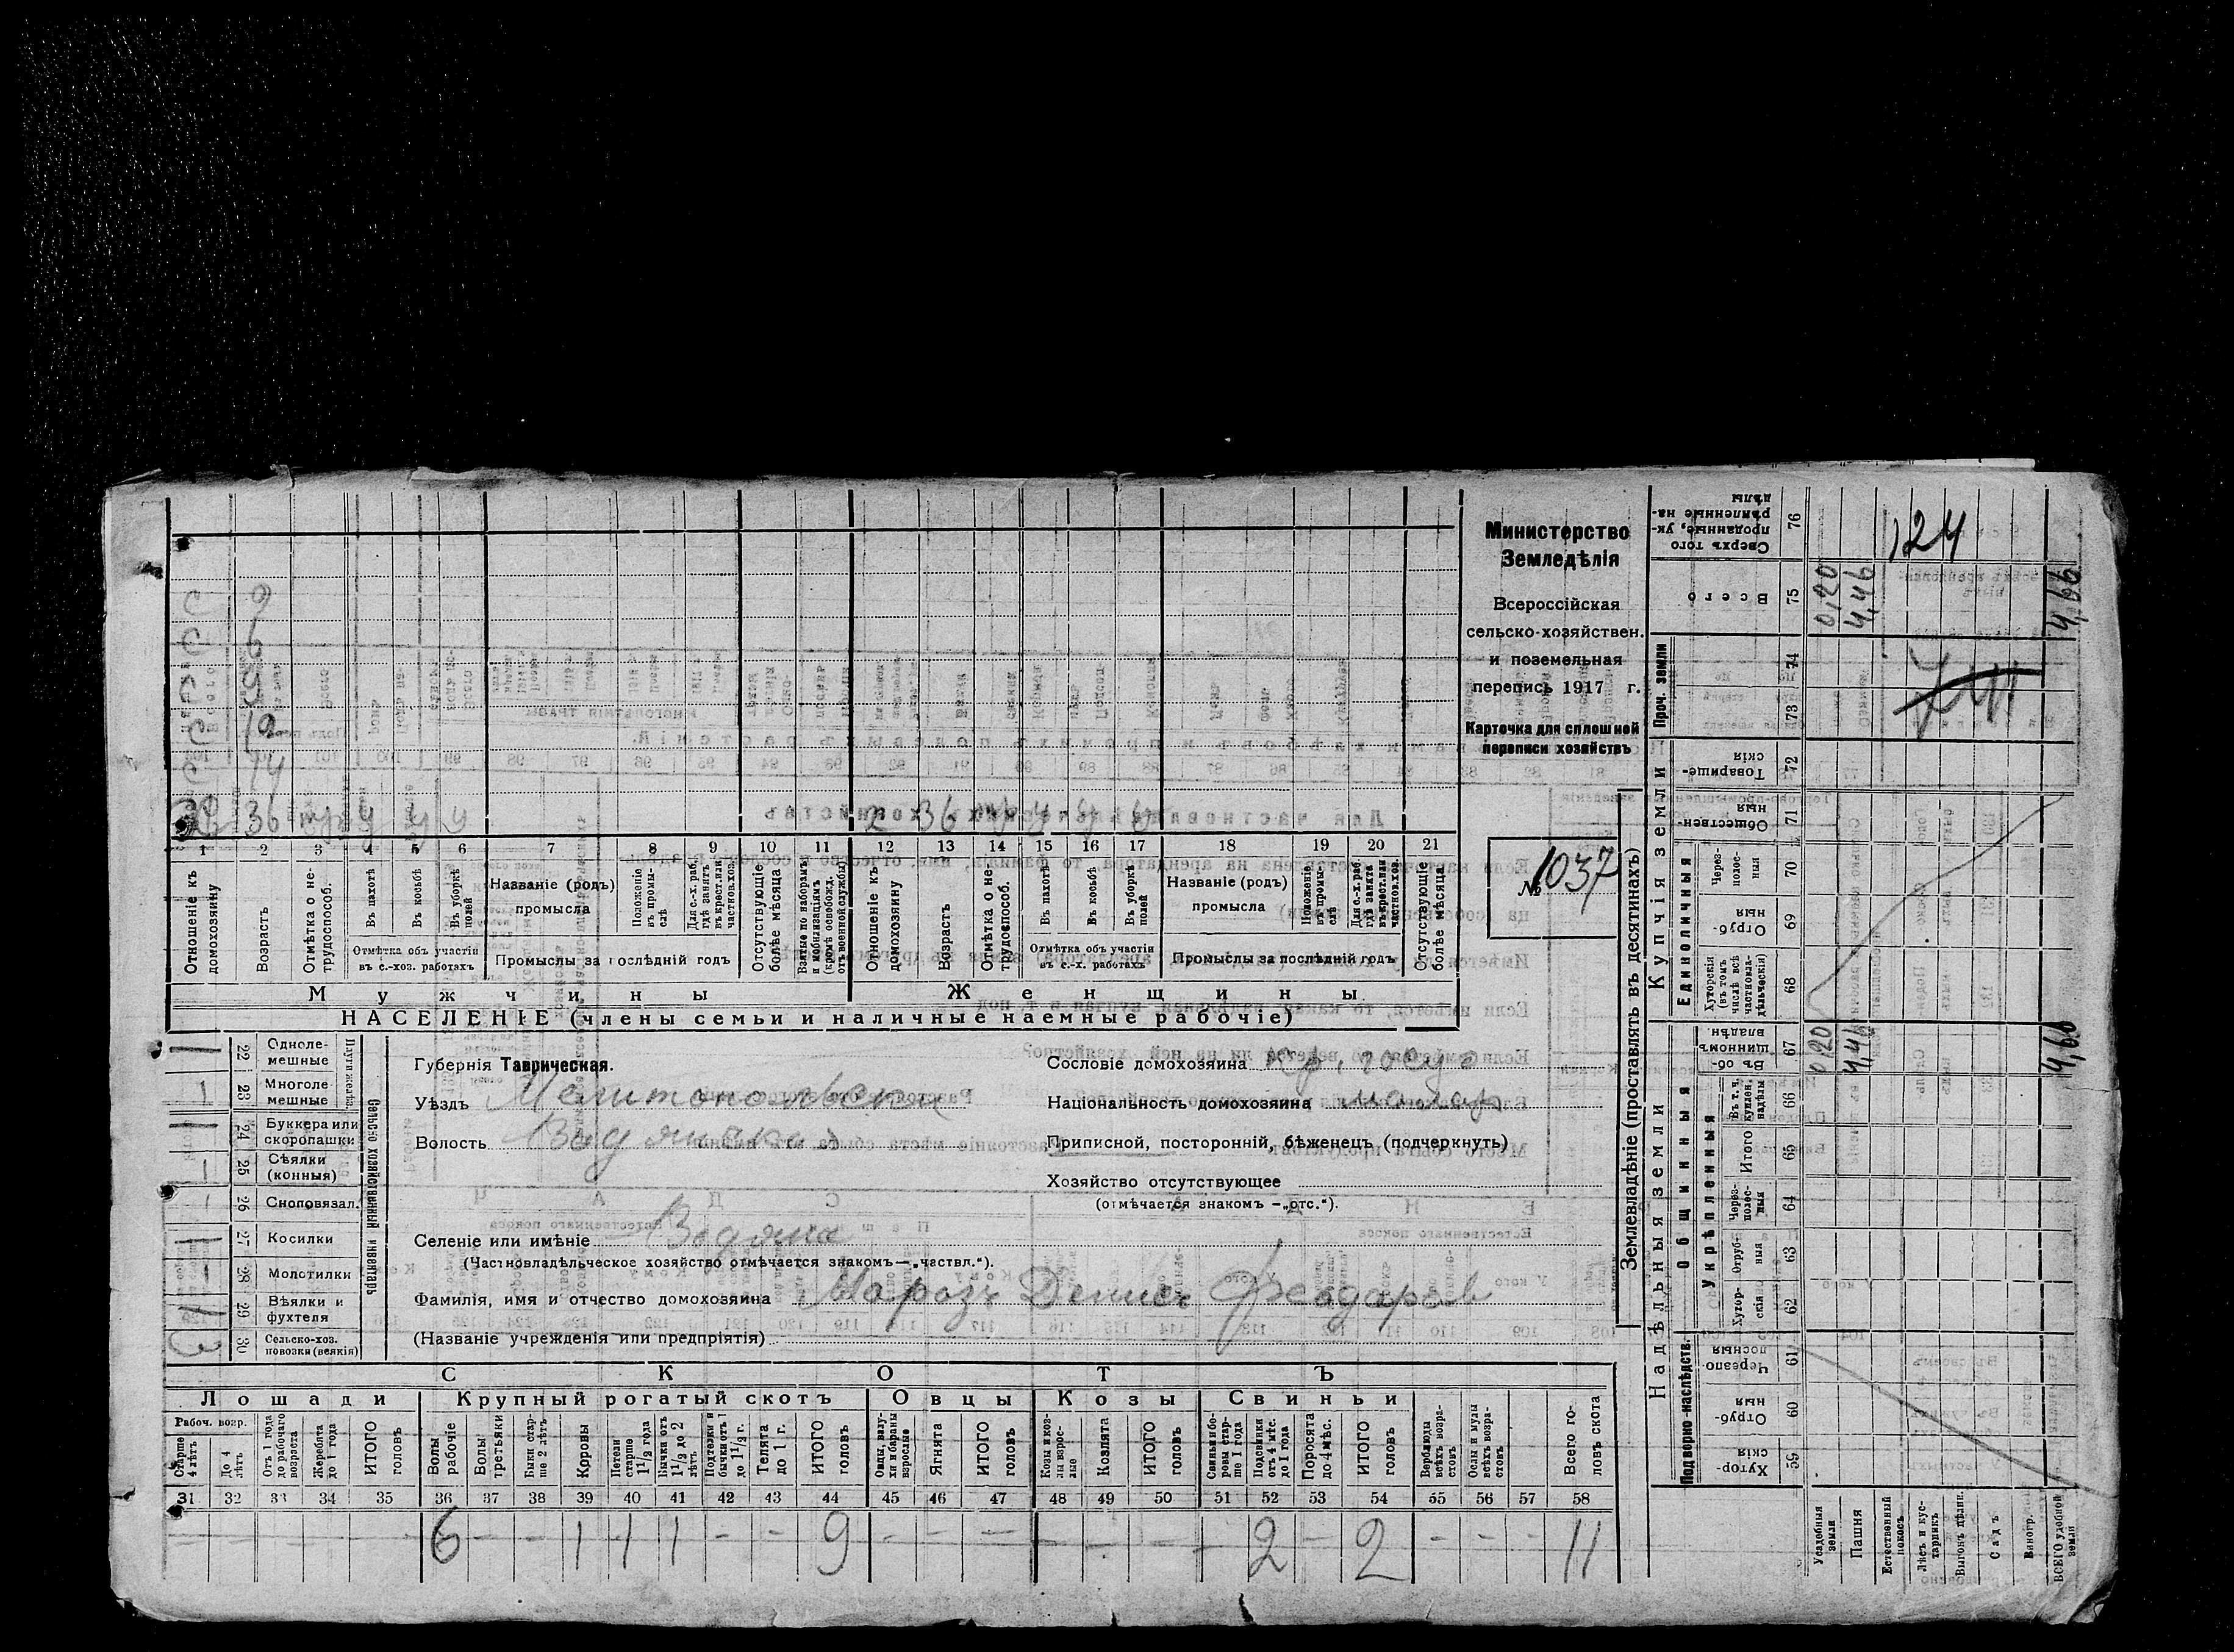 Министерство
Земледѣлія
Всероссійская
сельско-хозяйствен.
и поземельная
перепись 1917 г.
Карточка для сплошной
переписи хозяйствъ
№ 1037
с 9
с 6
с 5
с 10
с 14
36 у у у
2 36 у у у
1 2 3 4 5 6 7 8 9 10 11 12 13 14 15 16 17 18 19 20 21
Отношеніе къ домохозяину
Возрастъ
Отмѣтка о не-трудоспособ.
Въ пахотѣ
Въ косьбѣ
Въ уборкѣ полей
Отмѣтка объ участіи въ с.-хоз. работахъ
Названіе (родъ) промысла
Положеніе въ промы-слѣ
Для с.-х. раб. гдѣ занятъ въ крест. или частнов. хоз.
Промыслы за послѣдній годъ
Отсутствующіе болѣе мѣсяца
Взятые по наборамъ и мобилизаціямъ (кромѣ освобожд. отъ военной службы)
Отношеніе къ домохозяину
Возрастъ
Отмѣтка о не-трудоспособ.
Въ пахотѣ
Въ косьбѣ
Въ уборкѣ полей
Отмѣтка объ участіи въ с.-х. работахъ
Названіе (родъ) промысла
Положеніе въ промы-слѣ
Для с.-х. раб. гдѣ занята въ крест. или частнов. хоз.
Промыслы за послѣдній годъ
Отсутствующіе болѣе мѣсяца
Мужчины
Женщины
НАСЕЛЕНІЕ (члены семьи и наличные наемные рабочіе)
Сельско-хозяйственный инвентарь
22 Одноле-мешные
23 Многоле-мешные 1
24 Буккера или скоропашки
25 Сѣялки (конныя) 1
26 Сноповязал.
27 Косилки 1
28 Молотилки
29 Вѣялки и фухтеля 1
30 Сельско-хоз. повозки (всякія) 3
Губернія Таврическая.
Уѣздъ Мелитопольскій
Волость Водянская
Селеніе или имѣніе Водяна
(Частновладѣльческое хозяйство отмѣчается знакомъ—„частвл.“).
Фамилія, имя и отчество домохозяина Марозъ Денисъ Феодаровъ
(Названіе учрежденія или предпріятія)
Сословіе домохозяина кр.
Національность домохозяина малор
Приписной, посторонній, бѣженецъ (подчеркнуть)
Хозяйство отсутствующее
(отмѣчается знакомъ —„отс.“).
СКОТЪ
Лошади Крупный рогатый скотъ Овцы Козы Свиньи
Рабоч. возр.
Старше 4 лѣтъ
До 4 лѣтъ
Отъ 1 года до рабочаго возраста
Жеребята до 1 года
ИТОГО головъ
Волы рабочіе
Волы третьяки
Быки стар-ше 2 лѣтъ
Коровы
Нетели старше 1 1/2 года
Бычки отъ 1 1/2 до 2 лѣтъ
Подтелки и бычки отъ 1 до 1 1/2 г.
Телята до 1 г.
ИТОГО головъ
Овцы, валу-хи и бараны взрослые
Ягнята
ИТОГО головъ
Козы и коз-лы взрос-лые
Козлята
ИТОГО головъ
Свиньи и бо-ровы стар-ше 1 года
Подсвинки отъ 4 мѣс. до 1 года
Поросята до 4 мѣс.
ИТОГО головъ
Верблюды всѣхъ возра-стовъ
Ослы и мулы всѣхъ возра-стовъ
Всего го-ловъ скота
31 32 33 34 35 36 37 38 39 40 41 42 43 44 45 46 47 48 49 50 51 52 53 54 55 56 57 58
6 - - 1 1 1 - - 9 - - - - - - 2 - 2 - - - 11
Землевладѣніе (проставлять въ десятинахъ)
Надѣльныя земли
Купчія земли
Проч. земли
Подворно-наслѣдств.
Общинныя
Укрѣпленныя
Единоличныя
Сверхъ того проданные, ук-рѣпленные на-дѣлы 76 124
Всего 75 0,20 4,46 4,66
74
73
Товарище-скія 72
Обществен-ныя 71
Через-полос-ныя 70
Отруб-ныя 69
Хуторскія (въ томъ числѣ всѣ частновла-дѣльческія) 68
Въ об-щинномъ владѣн. 67 0,20 4,46 4,66
Въ т. ч. куплен. надѣлы 66
Итого 65
Черезполос-ныя 64
Отруб-ныя 63
Хутор-скія 62
Черезпо-лосныя 61
Отруб-ныя 60
Хутор-скія 59
Усадебныя земли
Пашня
Естественный покосъ
Лѣсъ и кус-тарникъ
Выгонъ дѣлян.
Садъ
Виногр.
ВСЕГО удобной земли